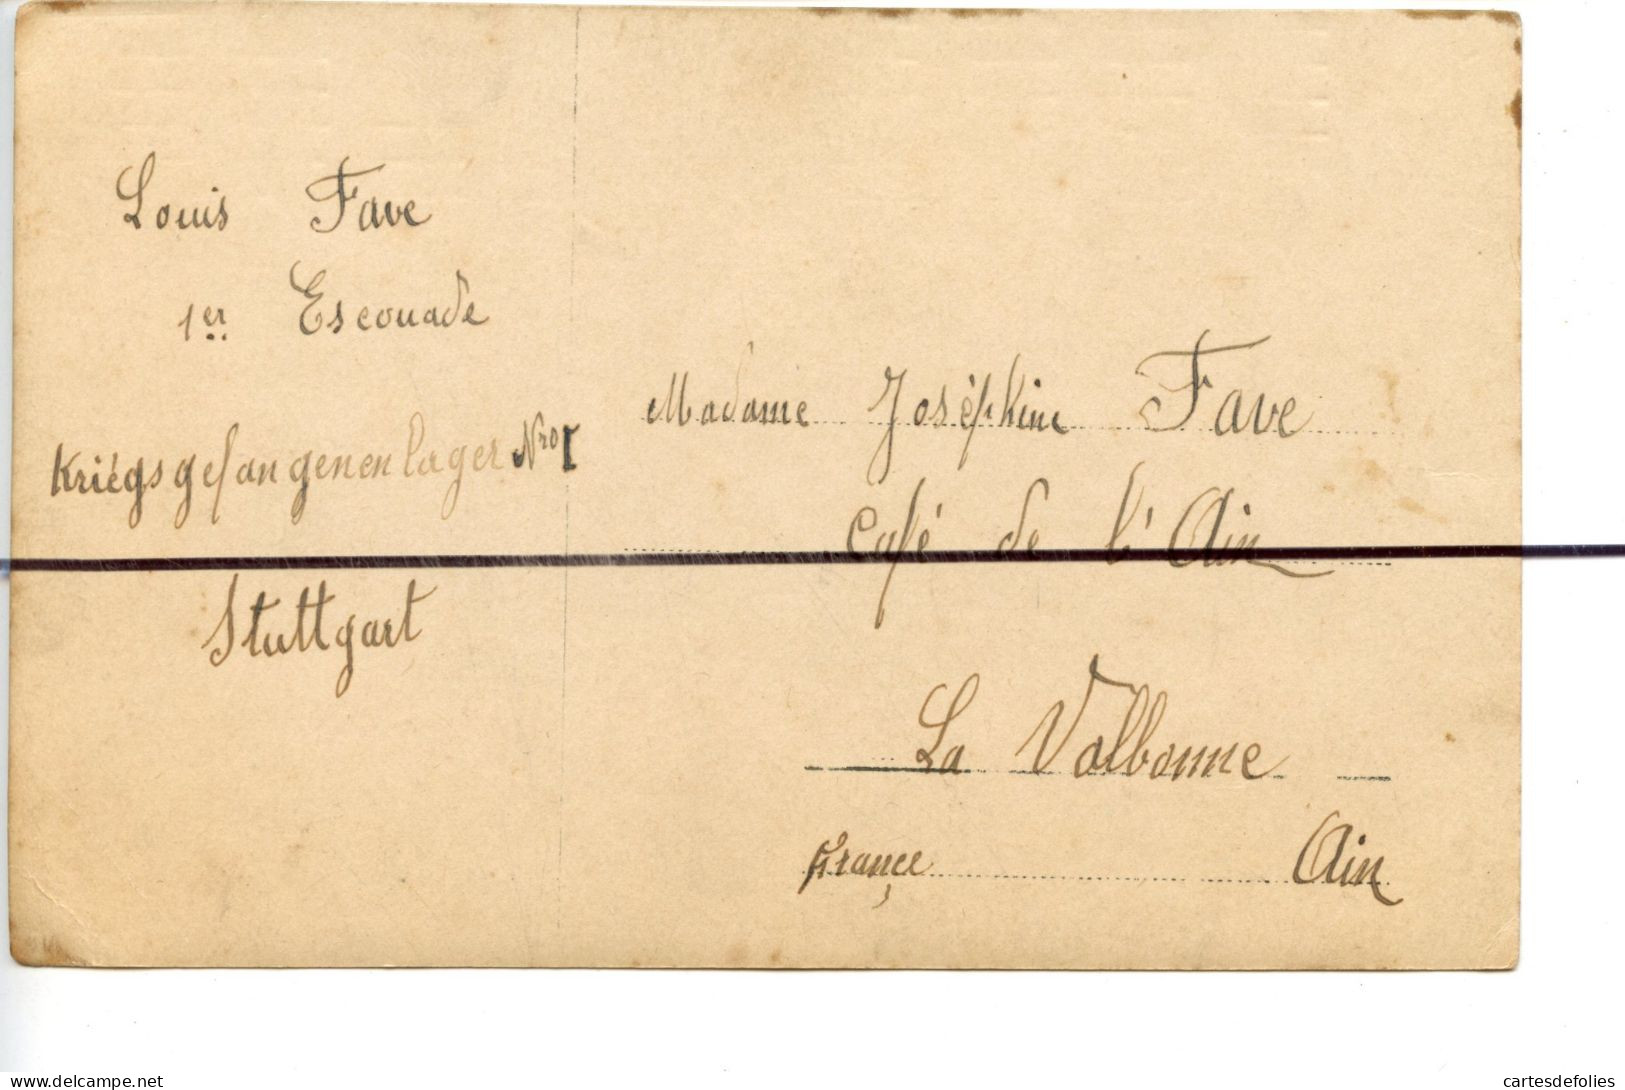 Louis Fave
1er Escouade
Kriégsgefangenenlager Nro I
Stuttgart
Madame Joséphine Fave
Café de l'Ain
La Valbonne
françe Ain
cartesdefolies